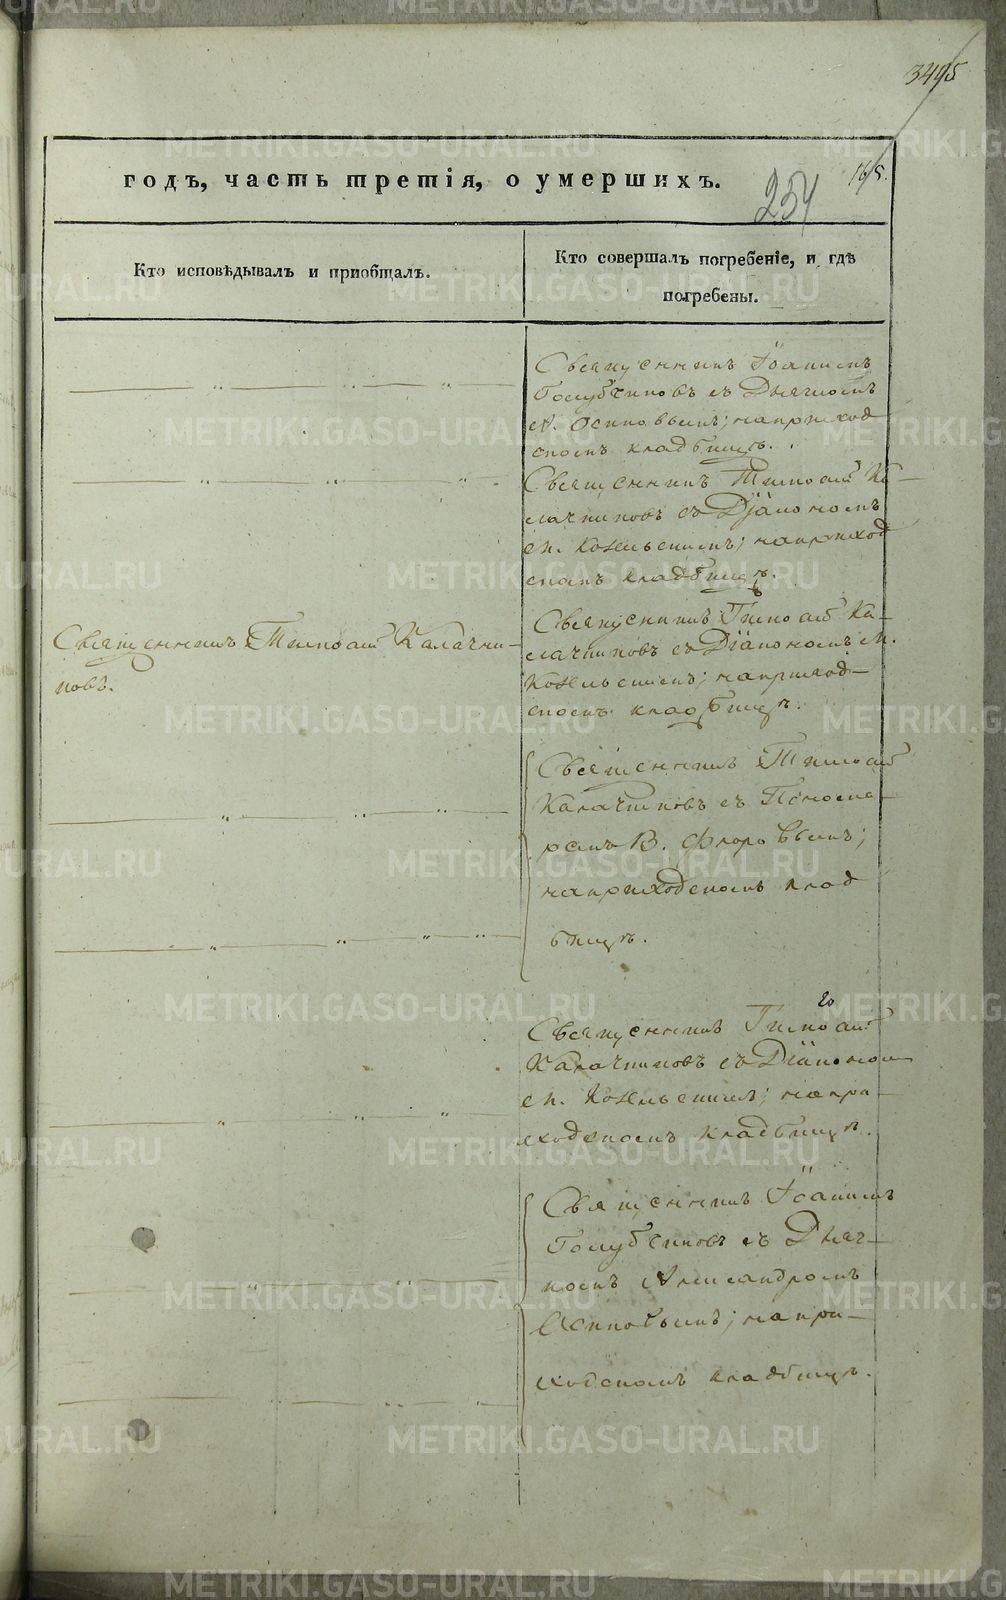 3445
годъ, часть третія, о умершихъ.
165.
254
Кто исповѣдывалъ и пріобщалъ.
Кто совершалъ погребеніе, и гдѣ
погребены.
Священникъ Іоаннъ
Голубчиковъ съ Дьячкомъ
А. Осиповымъ; на приход
скомъ кладбищѣ.
Священникъ Тимоѳей Ка-
лачниковъ съ Діакономъ
на приход
скомъ кладбищѣ.
Священникъ Тимоѳей Калачни-
ковъ.
Священникъ Тимоѳей Ка-
лачниковъ съ Діакономъ
на приход-
скомъ кладбищѣ.
Священникъ Тимоѳей
Калачниковъ съ Понома-
ремъ В. Флоровымъ;
на приходскомъ клад
бищѣ.
Священникъ Тимоѳей
Калачниковъ съ Діакономъ
на при-
ходскомъ кладбищѣ.
Священникъ Іоаннъ
Голубчиковъ съ Дьяч-
комъ Александромъ
Осиповымъ; на при-
ходскомъ кладбищѣ.
METRIKI.GASO-URAL.RU